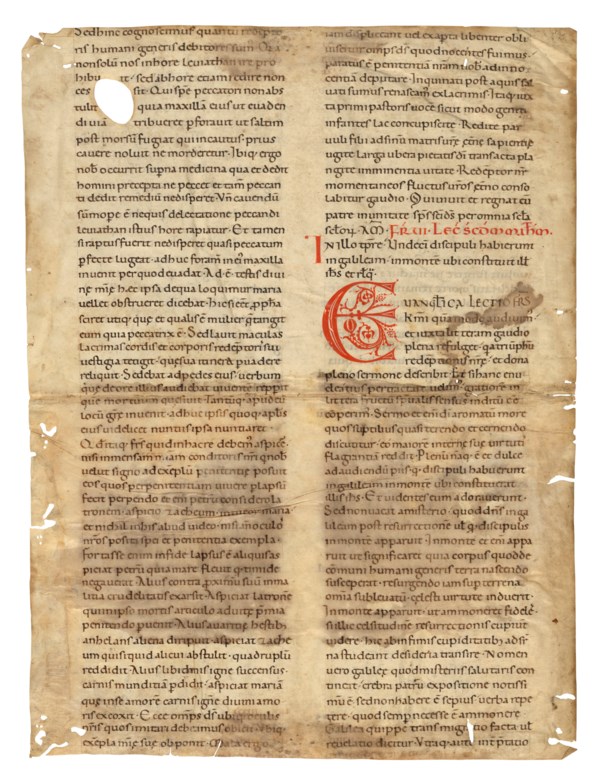 Sed hinc cognoscimus quanti redēpto
ris humani generis debitores sum⁹. Qui
non solū nos in hore leviathan ire pro
hibu it · sed ab hore etiam redire non
ces sit. Qui spē peccatori non abs
tulit quia maxillā eius ut euaden
di uiā tribueret pforauit ut saltim
post morsū fugiat qui incautus · prius
cauere noluit ne morderetur. Ibiq; ergo
nob̄ occurrit supna medicina quia et dedit
homini precepta ne peccet et tam̄ peccan
ti dedit remediū ne disperet. Vn̄ cauendū
sūmope ē ne quis delectatione peccandi
leuiathan istius hore rapiatur. Et tamen
si raptus fuerit ne disperet quia si peccatum
pfecte lugeat · adhuc foramē in ei⁹ maxilla
inuenit per quod euadat. Adē testis diui
ne mię h̄ et ipsa de qua loquimur maria
uellet obstrueret dicebat · hic si eēt ppha
sciret utiq; quę et qualis ē mulier q̄ tangit
eum quia peccatrix ē · Sed lauit maculas
lacrimas cordis et corporis redēptoris sui
uestigia tetigit · quę sua itinera praua dere
reliquit. Sedebat ad pedes ei⁹ · uerbum
que de ore illius audiebat
que mortuum Tantū q; apud eū
locū grę inuenit · ad huc ipsis quoq; aplis
eius uidelicet nuntii ipsa nuntiaret.
Qd itaq; frs quid in hac re debem⁹ aspice
nisi inmensam miam conditoris nri q̄ nob̄
uelut signo ad exēplū penitentię posuit
eos quos per penitentiam uiuere p⁹ lapsū
fecit perpendo et eni petrū considero la
tronem · aspicio zacheum · intueor maria
et nichil in his aliud uideo · nisi an̄ oculos
nros posita spei et penitentia exempla.
Fortasse enim in fide lapsus ē aliquis as
piciat petrū qui amare fleuit q̄ timide
negauerat. Alius contra pximū suū in ma
licia crudelitatis exarsit. Aspiciat latronē
qui in ipso mortis articulo ad uitę pmia
penitendo puenit. Alius auaritię hestib⁹
anhelans aliena diripuit · aspiciat zache
um qui siquid alicui abstulit · quadruplū
reddidit. Alius libidinis igne succensus ·
carnis munditiam pdidit · aspiciat mariā
que in se amorē carnis igne diuini amo
ris excoxit. Ecce omps ds ubiq; oculis
nris quos imitari debeamus obicit · ubiq;
exēpla mię suę opponit. Mala ergo
iam displiceant uel experta libenter obli
uiscitur omps ds quod nocentes fuimus.
paratus ē penitentiā nram nob̄ ad inno
centiā deputare. Inquinati post aquas sal
uati sumus renascam⁹ ex lacrimis. Itaq; iux
ta primi pastoris uocē sicut modo geniti
infantes lac concupiscite. Redite par
uuli filii ad sinū matris uręę ętne sapientię
sugite larga ubera pietatis di transacta pla
ngite imminentia uitate. Redēptor nr
momentaneos fluctus urōs ętno conso
labitur gaudio. Qui uiuit et regnat cū
patre in unitate sps scī ds per omnia scla
scloꝝ. AM. FR̄ VI. Lec̄ scd̄o matheum.
In illo tpre. Undecī discipuli habierunt
in galileam · in monte ubi constituit ill
ihs et rlq̄.
Euangelica lectio frs
k̄mi quā modo audiuim⁹
et iuxta lit teram gaudio
plena refulget · q̄a triūphū
redēptoris nri · et dona
pleno sermone describit. Et si hanc enu
cleatius pertractate uolum⁹ gratiorē in
lit tera fructū spiritalis sensus inditū ēē
cōperim⁹. Sermo et di aromatū more
quo subtilius quasi terendo et cernendo
discutitur · eo maiorē internę suę uirtutī
flagrantiā reddit. Plenū naq; ē et dulce
ad audiendū pii sq; discipuli habuerunt
in galileam in monte ubi constituerat
illis ihs. Et uidentes eum adorauerunt.
Sed non uacat a misterio quod dns in ga
lileam post resurrectionē ul' q; discipulis
in monte apparuit. In monte et enī appa
ruit ut significaret quia corpus quod de
comuni humani generis terra nascendo
susceperat · resurgendo iam sup terrena
omīa subleuatū · celesti uirtute induerit.
In monte apparuit · ut ammoneret fidelē
si illic celsitudinē resurrectionis cupiunt
uidere · hic ab infimis cupiditatib⁹ ad sr̄
na studeant desideria transire. Nomen
uero galileę quod misterii salutaris con
tineat · crebra patrū expositione notissi
mū ē sed non habere ē sępius uerba repe
tere · quod semp necesse ē ammonere.
Galilea quippe transmigratio facta ul'
reuelatio dicitur. Utraq; aut̄ inpretatio